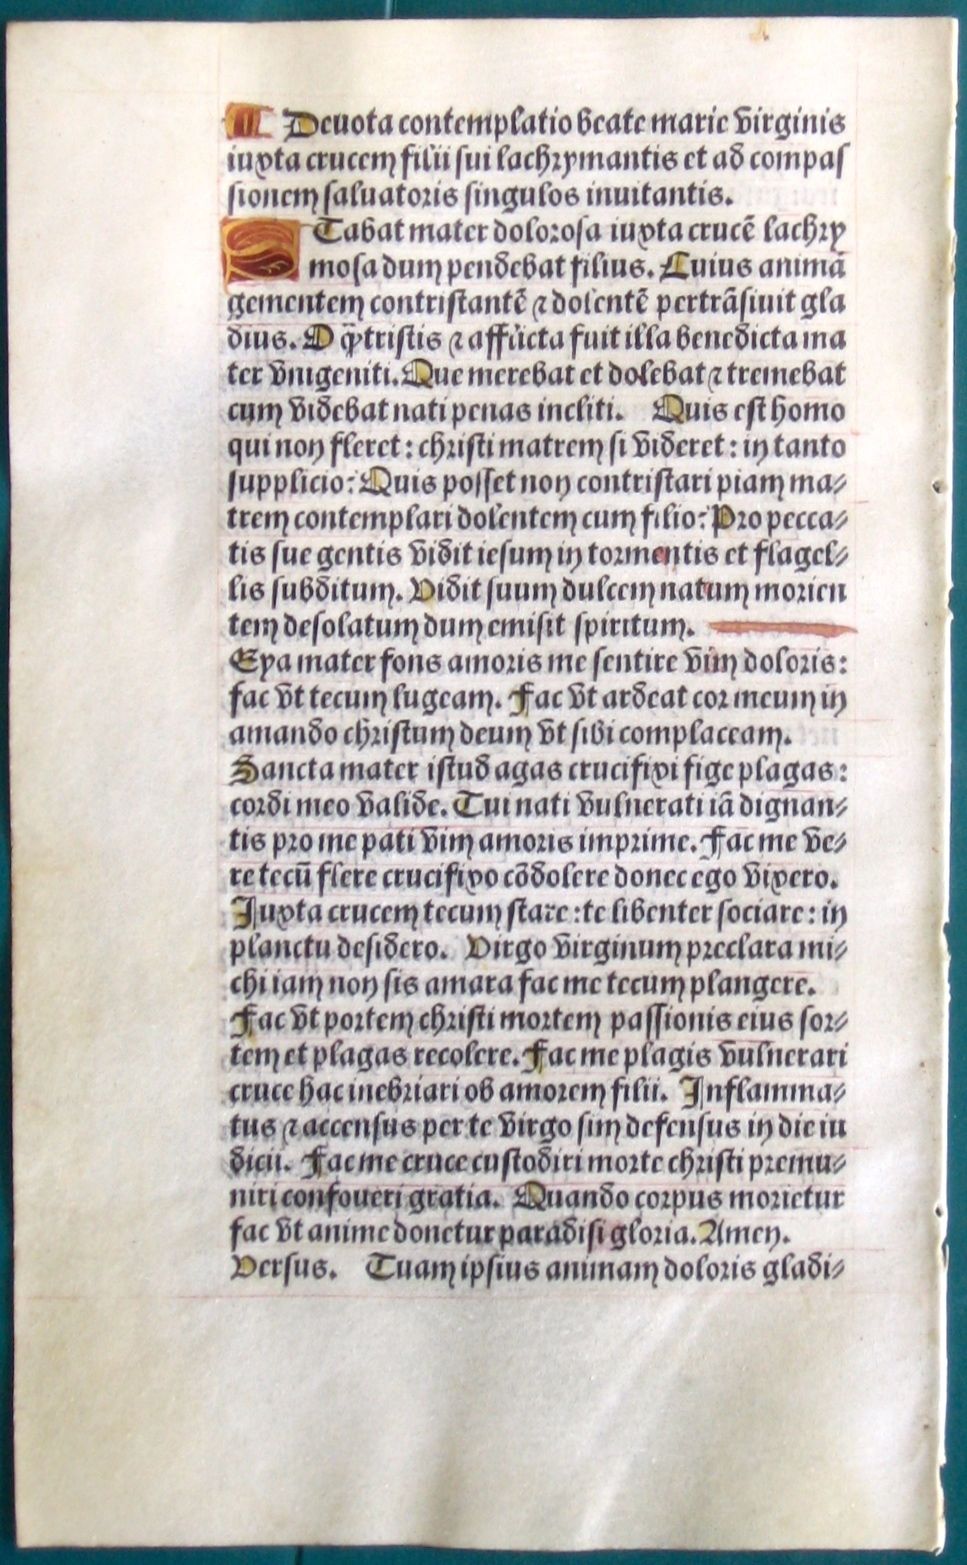 ¶ Deuota contemplatio beate marie virginis
iuxta crucem filii sui lachrymantis et ad compas
sionem saluatoris singulos inuitantis.
STabat mater dolorosa iuxta crucē lachry
mosa dum pendebat filius. Cuius animā
gementem contristantē ⁊ dolentē pertrāsiuit gla
dius. O q̄̃ tristis ⁊ afflicta fuit illa benedicta ma
ter vnigeniti. Que merebat et dolebat ⁊ tremebat
cum videbat nati penas incliti. Quis est homo
qui non fleret: christi matrem si videret: in tanto
supplicio: Quis posset non contristari piam ma⸗
trem contemplari dolentem cum filio: Pro pecca⸗
tis sue gentis vidit iesum in tormentis et flagel⸗
lis subditum. Vidit suum dulcem natum morien
tem desolatum dum emisit spiritum.
Eya mater fons amoris me sentire vim doloris:
fac vt tecum lugeam. Fac vt ardeat cor meum in
amando christum deum vt sibi complaceam.
Sancta mater istud agas crucifixi fige plagas:
cordi meo valide. Tui nati vulnerati iā dignan⸗
tis pro me pati vim amoris imprime. Fac me ve⸗
re tecū flere crucifixo cōdolere donec ego vixero.
Iuxta crucem tecum stare: te libenter sociare: in
planctu desidero. Virgo virginum preclara mi⸗
chi iam non sis amara fac me tecum plangere.
Fac vt portem christi mortem passionis eius sor⸗
tem et plagas recolere. Fac me plagis vulnerari
cruce hac inebriari ob amorem filii. Inflamma⸗
tus ⁊ accensus per te virgo sim defensus in die iu
dicii. Fac me cruce custodiri morte christi premu⸗
niri confoueri gratia. Quando corpus morietur
fac vt anime donetur paradisi gloria. Amen.
Versus. Tuam ipsius animam doloris gladi⸗